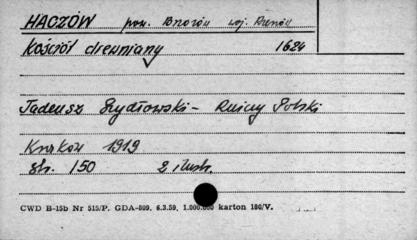 HACZÓW pow. Brozów woj. Rzeszów
Kościół drewniany 1624
Tadeusz Szydłowski - Ruiny Polski
Kraków 1919
str. 150 2 ilustr.
CWD B-15b Nr 515/P. GDA-809. 6.3.59. 1.000.000 karton 180/V.